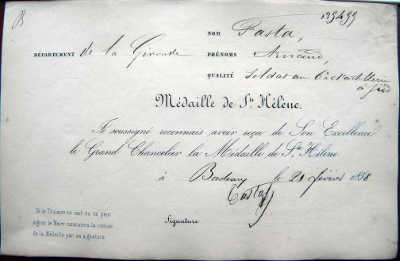 NOM Fasta,
DÉPARTEMENT de la Gironde
PRÉNOMS
QUALITÉ Soldat au
à pied
Médaille de Ste Hélène.
Je soussigné reconnais avoir reçu de Son Excellence
le Grand Chancelier la Médaille de Ste Hélène
à Bordeaux le 21 février 1858
Si le Titulaire ne sait ou ne peut
signer le Maire constatera la remise
de la Médaille par sa signature
Signature